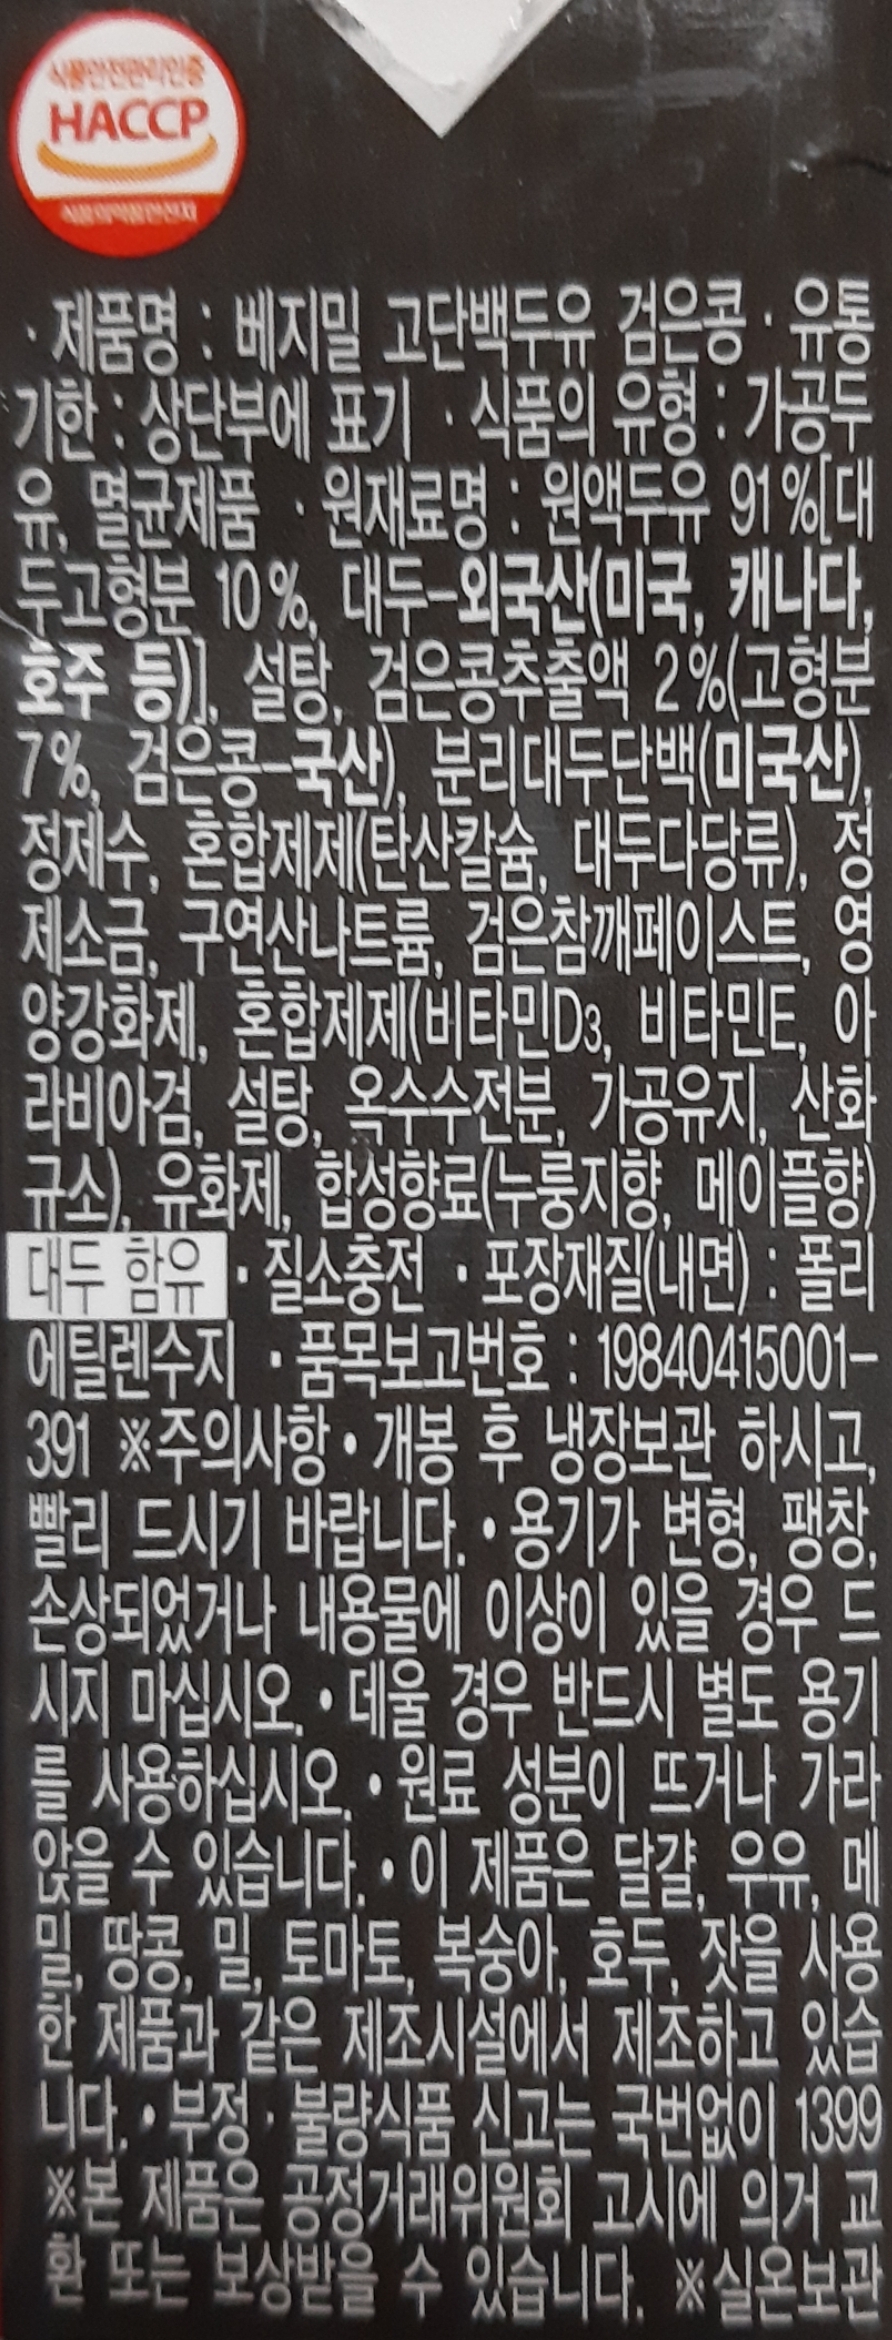 식품안전관리인증
HACCP
식품의약품안전처
· 제품명 : 베지밀 고단백두유 검은콩 · 유통
기한 : 상단부에 표기 · 식품의 유형 : 가공두
유, 멸균제품 · 원재료명 : 원액두유 91%[대
두고형분 10%, 대두-외국산(미국, 캐나다,
호주 등)], 설탕, 검은콩추출액 2%(고형분
7%, 검은콩-국산), 분리대두단백(미국산),
정제수, 혼합제제(탄산칼슘, 대두다당류), 정
제소금, 구연산나트륨, 검은참깨페이스트, 영
양강화제, 혼합제제(비타민D3, 비타민E, 아
라비아검, 설탕, 옥수수전분, 가공유지, 산화
규소), 유화제, 합성향료(누룽지향, 메이플향)
대두 함유 · 질소충전 · 포장재질(내면) : 폴리
에틸렌수지 · 품목보고번호 : 19840415001-
391 ※주의사항 • 개봉 후 냉장보관 하시고,
빨리 드시기 바랍니다. • 용기가 변형, 팽창,
손상되었거나 내용물에 이상이 있을 경우 드
시지 마십시오. • 데울 경우 반드시 별도 용기
를 사용하십시오. • 원료 성분이 뜨거나 가라
앉을 수 있습니다. • 이 제품은 달걀, 우유, 메
밀, 땅콩, 밀, 토마토, 복숭아, 호두, 잣을 사용
한 제품과 같은 제조시설에서 제조하고 있습
니다. • 부정 · 불량식품 신고는 국번없이 1399
※본 제품은 공정거래위원회 고시에 의거 교
환 또는 보상받을 수 있습니다. ※실온보관